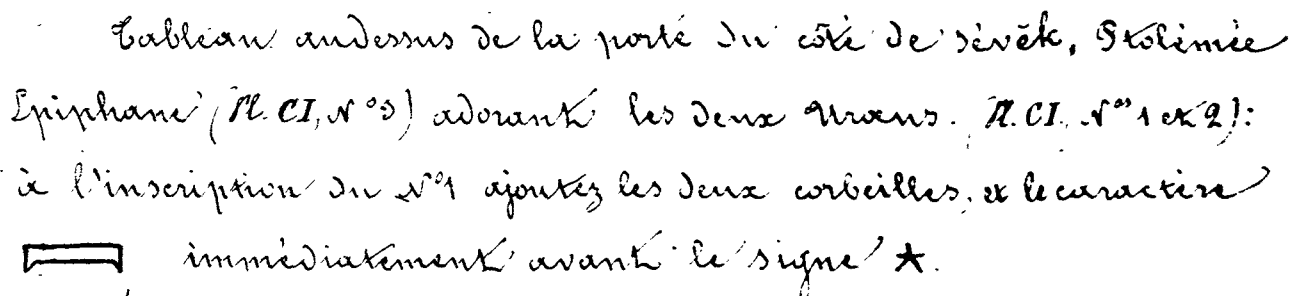 Tableau audessus de la porte du côté de Sévêk, Ptolémée
Epiphane (Pl. CI, N° 3) adorant les deux Uraeus. Pl. CI, N°s 1 et 2):
à l'inscription du N° 1 ajoutez les deux corbeilles, et le caractère
immédiatement avant le signe ★.